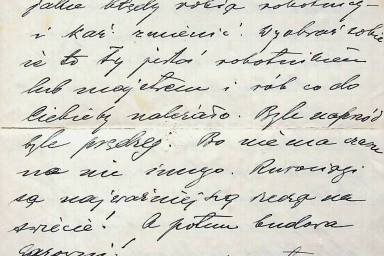 jakie błędy robią robotnicy
i każ zmienić. Wyobraź sobie
że to Ty jesteś robotnikiem
lub majstrem i rób co do
Ciebie by należało. Byle naprzód
byle prędzej. Bo nie ma czasu
na nic innego. Rurociągi
są najważniejszą rzeczą na
świecie! A potem budowa
gazowni!